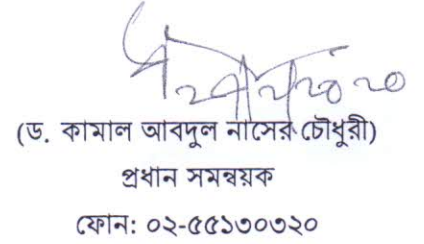 (ড. কামাল আবদুল নাসের চৌধুরী)
প্রধান সমন্বয়ক
ফোন: ০২-৫৫১৩০৩২০